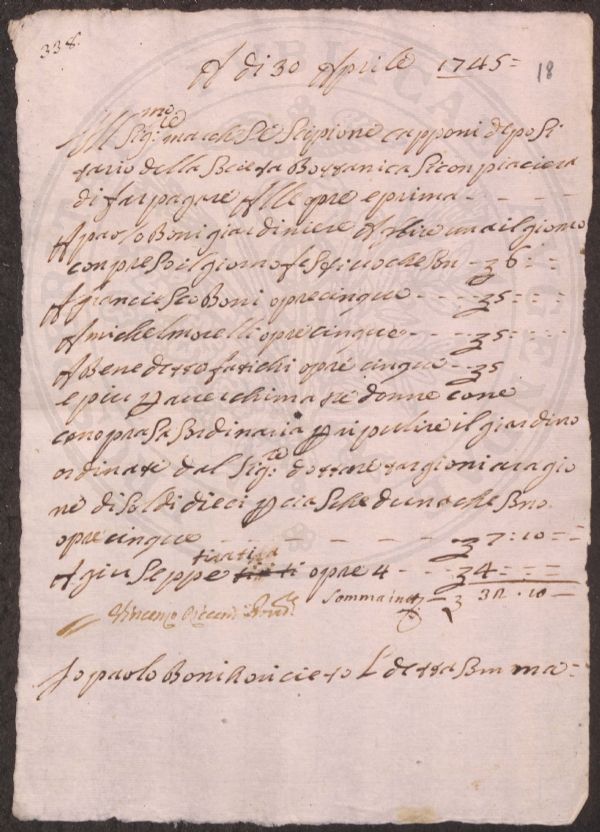 338.
A di 30 Aprile 1745 =
18
Ill.mo Sig.re marchese Scipione capponi deposi
tario della Societa Bottanica si conpiaciera
di far pagare Alle opre e prima - - - -
A paolo Boni giardiniere A lire una il giorno
conpreso il giorno festivo che sono - - 6 : = =
A franciesco Boni opre cinque - - - - 5 : = =
A michel morelli opre cinque - - - 5 : = =
A Benedetto fatichi opre cinque - - 5
e piu p aver chimato donne con e
con opra sa sordinaria p ripulire il giardino
ordinate dal Sig.re dottore targioni a ragio
ne di soldi dieci p ciascheduno che sono
opre cinque - - - - - 7 : 10 = =
A giuseppe turtira opre 4 - - - 4 = : = =
Somma in tt.o - 32 . 10 =
Vincenzo
Io paolo Boni Riricieto L detta somma =